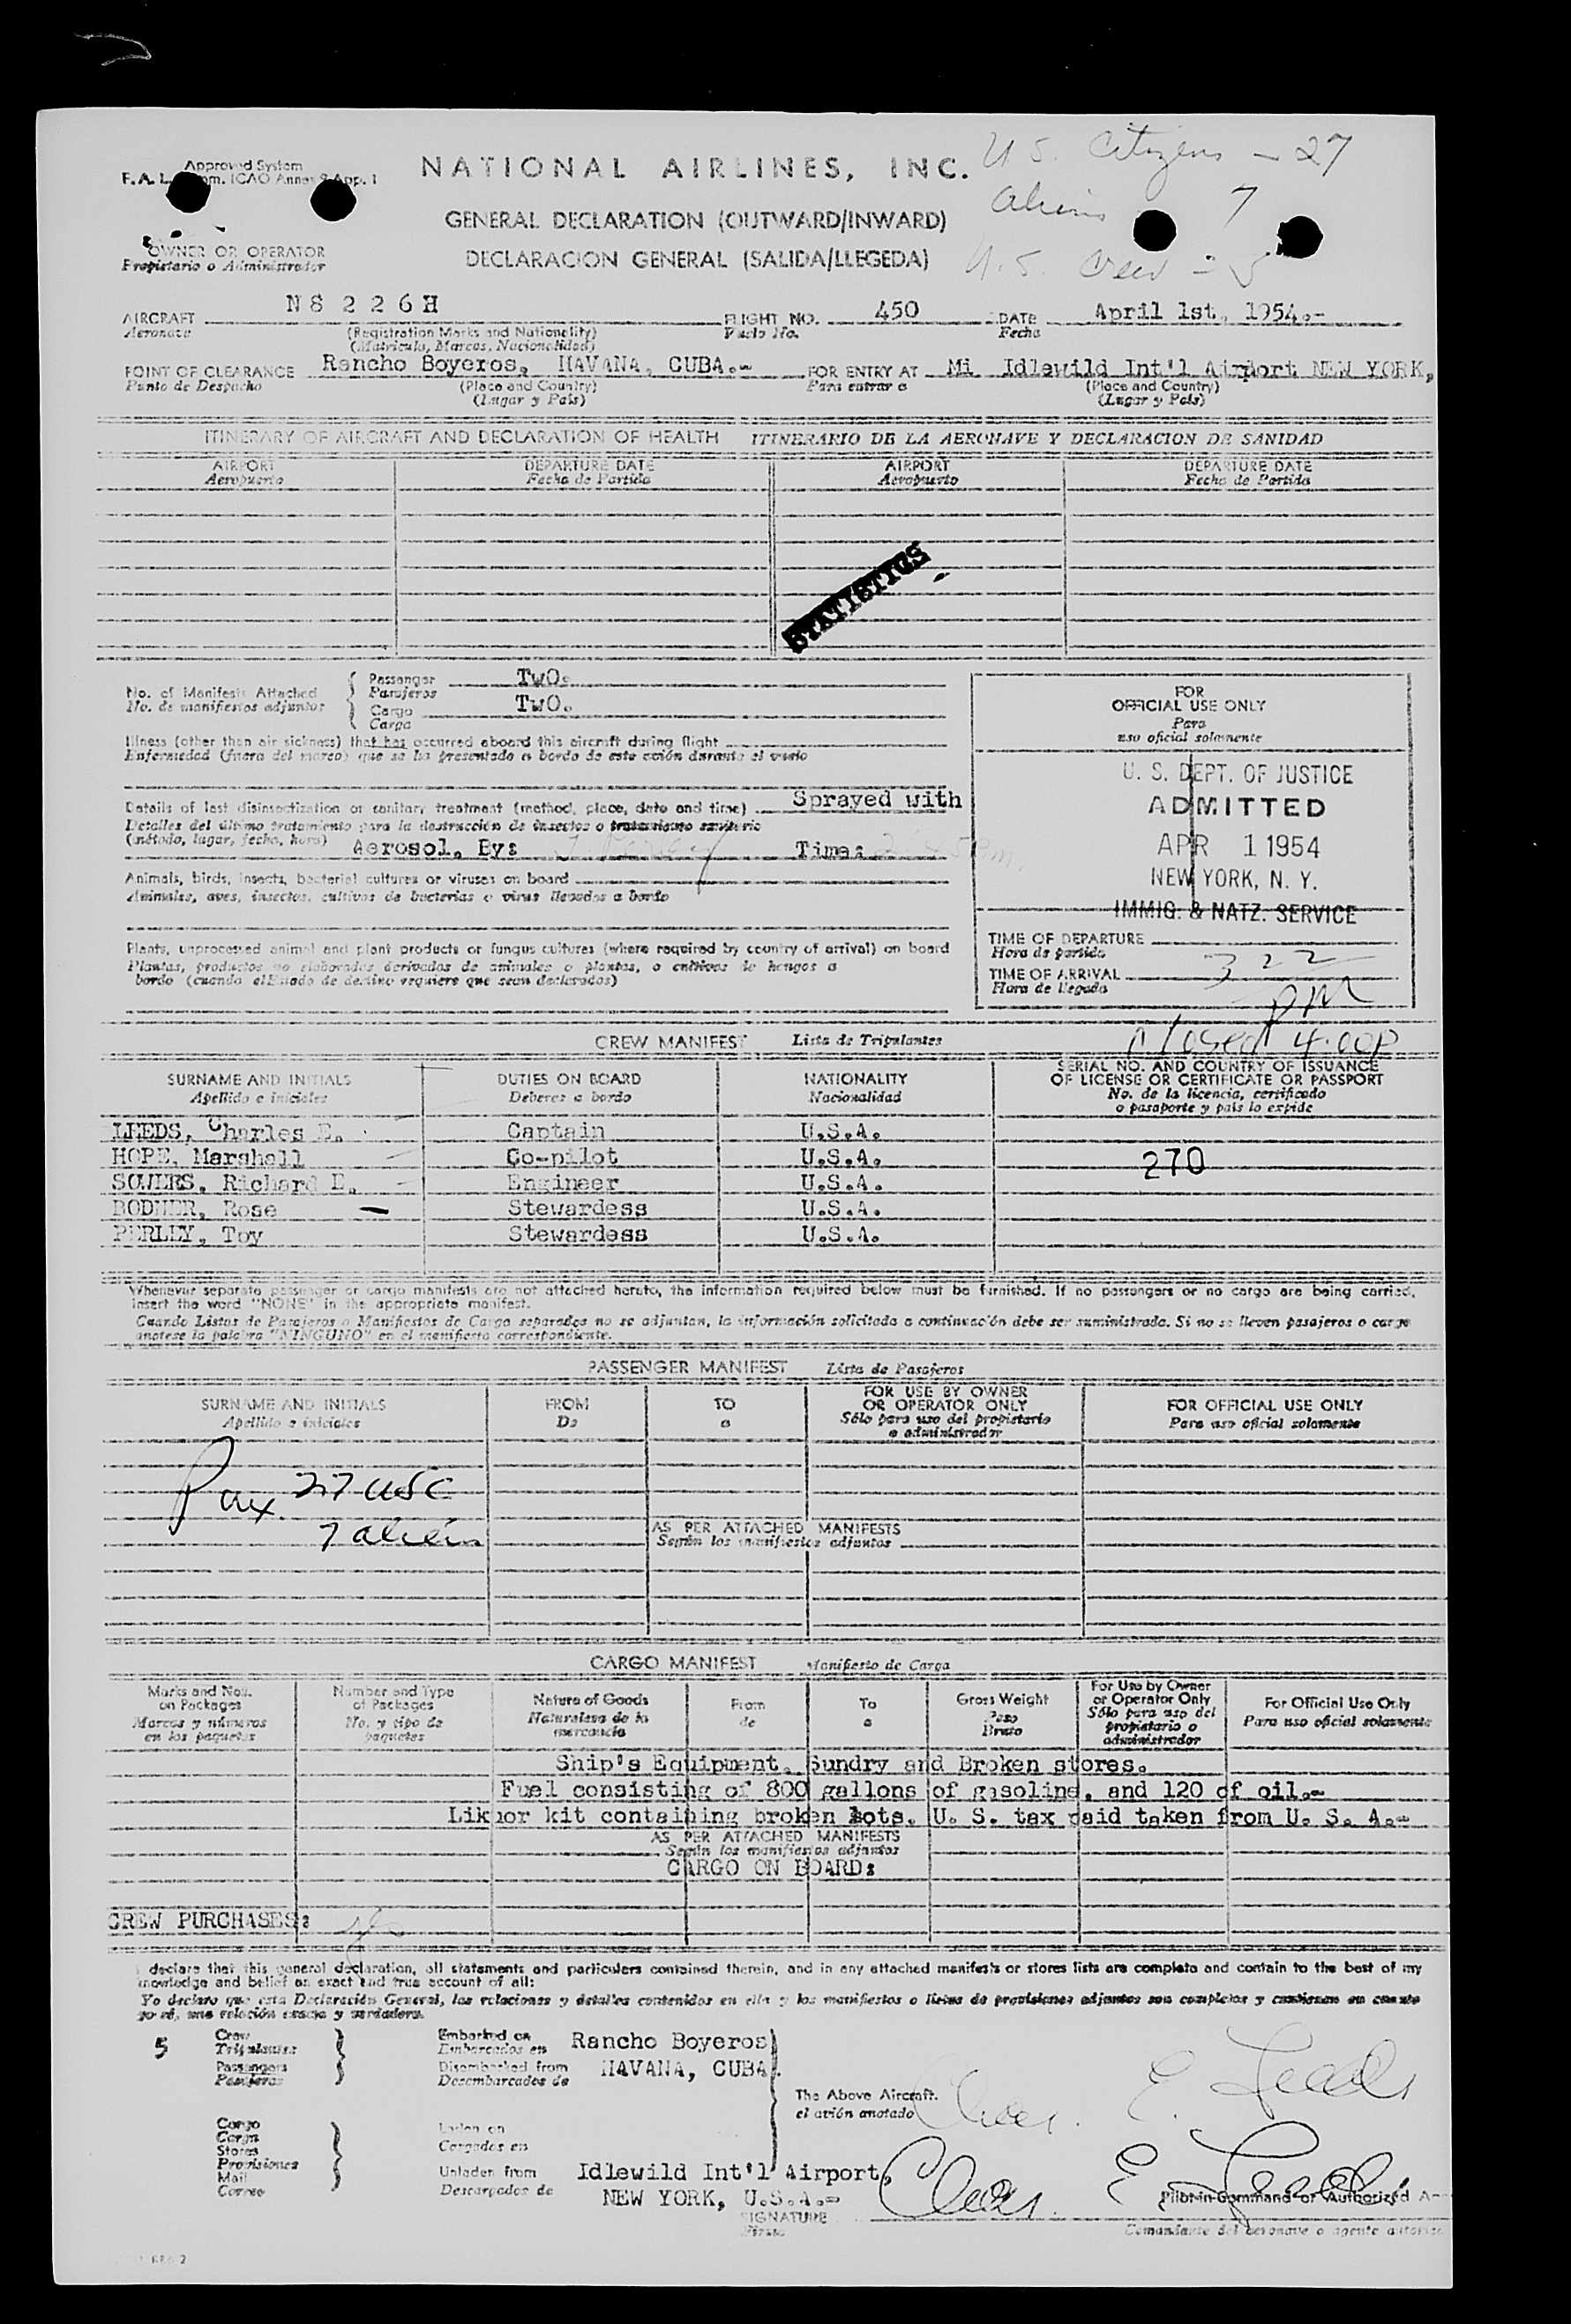 Approved System
F.A.L. Com. ICAO Annex 9 App. 1
NATIONAL AIRLINES, INC.
U.S. Citizens - 27
Aliens 7
U.S. Crew = 5
GENERAL DECLARATION (OUTWARD/INWARD)
DECLARACION GENERAL (SALIDA/LLEGEDA)
OWNER OR OPERATOR
Propietario o Administrador
AIRCRAFT N8226H FLIGHT NO. 450 DATE April 1st, 1954.-
Aeronave (Registration Marks and Nationality) Vuelo No. Fecha
(Matricula, Marcas, Nacionalidad)
POINT OF CLEARANCE Rancho Boyeros, HAVANA, CUBA.- FOR ENTRY AT Mi Idlewild Int'l Airport NEW YORK,
Punto de Despacho (Place and Country) Para entrar a (Place and Country)
(Lugar y Pais) (Lugar y Pais)
ITINERARY OF AIRCRAFT AND DECLARATION OF HEALTH ITINERARIO DE LA AERONAVE Y DECLARACION DE SANIDAD
AIRPORT DEPARTURE DATE AIRPORT DEPARTURE DATE
Aeropuerto Fecha de Partida Aeropuerto Fecha de Partida
STATISTICS
No. of Manifests Attached Passenger TwO.
No. de manifiestos adjuntos Pasajeros
Cargo TwO.
Carga
Illness (other than air sickness) that has occurred aboard this aircraft during flight
Enfermedad (fuera del mareo) que se ha presentado a bordo de este avión durante el vuelo
Details of last disinsectization or sanitary treatment (method, place, date and time) Sprayed with
Detalles del último tratamiento para la destrucción de insectos o tratamiento sanitario
(método, lugar, fecha, hora) Aerosol. By: Time:
Animals, birds, insects, bacterial cultures or viruses on board
Animales, aves, insectos, cultivos de bacterias o virus llevados a bordo
Plants, unprocessed animal and plant products or fungus cultures (where required by country of arrival) on board
Plantas, productos no elaborados derivados de animales o plantas, o cultivos de hongos a
bordo (cuando el Estado de destino requiere que sean declarados)
FOR
OFFICIAL USE ONLY
Para
uso oficial solamente
U. S. DEPT. OF JUSTICE
ADMITTED
APR 1 1954
NEW YORK, N. Y.
IMMIG. & NATZ. SERVICE
TIME OF DEPARTURE
Hora de partida
TIME OF ARRIVAL 322
Hora de llegada PM
Closed 4:00P
CREW MANIFEST Lista de Tripulantes
SURNAME AND INITIALS DUTIES ON BOARD NATIONALITY SERIAL NO. AND COUNTRY OF ISSUANCE
Apellido e iniciales Deberes a bordo Nacionalidad OF LICENSE OR CERTIFICATE OR PASSPORT
No. de la licencia, certificado
o pasaporte y pais lo expide
LEEDS, Charles E. Captain U.S.A.
HOPE, Marshall Co-pilot U.S.A. 270
SOWERS, Richard E. Engineer U.S.A.
BODNER, Rose Stewardess U.S.A.
PERLEY, Toy Stewardess U.S.A.
Whenever separate passenger or cargo manifests are not attached hereto, the information required below must be furnished. If no passengers or no cargo are being carried,
insert the word "NONE" in the appropriate manifest.
Cuando Listas de Pasajeros o Manifiestos de Carga separados no se adjuntan, la información solicitada a continuación debe ser suministrada. Si no se lleven pasajeros o carga
anotese la palabra "NINGUNO" en el manifiesto correspondiente.
PASSENGER MANIFEST Lista de Pasajeros
SURNAME AND INITIALS FROM TO FOR USE BY OWNER OR OPERATOR ONLY FOR OFFICIAL USE ONLY
Apellido e iniciales De a Sólo para uso del propietario o administrador Para uso oficial solamente
Pax. 27 USC
7 alien
AS PER ATTACHED MANIFESTS
Según los manifiestos adjuntos
CARGO MANIFEST Manifiesto de Carga
Marks and Nos. on Packages Number and Type of Packages Nature of Goods From To Gross Weight For Use by Owner or Operator Only For Official Use Only
Marcas y números en los paquetes No. y tipo de paquetes Naturaleza de la mercancia de a Peso Bruto Sólo para uso del propietario o administrador Para uso oficial solamente
Ship's Equipment. Sundry and Broken stores.
Fuel consisting of 800 gallons of gasoline, and 120 of oil.-
Likuor kit containing broken lots. U. S. tax paid taken from U. S. A.-
AS PER ATTACHED MANIFESTS
Según los manifiestos adjuntos
CARGO ON BOARD:
CREW PURCHASES:
I declare that this general declaration, all statements and particulars contained therein, and in any attached manifests or stores lists are complete and contain to the best of my
knowledge and belief an exact and true account of all:
Yo declaro que esta Declaración General, las relaciones y detalles contenidos en ella y los manifiestos o listas de provisiones adjuntos son completos y contienen en cuanto
yo sé, una relación exacta y verdadera.
5 Crew Embarked on Rancho Boyeros
Tripulantes Embarcados en
Passengers Disembarked from HAVANA, CUBA.
Pasajeros Desembarcados de
The Above Aircraft.
el avión anotado
Chas. E. Leeds
Cargo Laden on
Carga Cargados en
Stores
Provisiones Unladen from Idlewild Int'l Airport,
Mail Descargados de NEW YORK, U.S.A.-
Correo
Chas. E. Leeds
SIGNATURE Pilot-in-Command or Authorized A
Firma Comandante del aeronave o agente autoriz